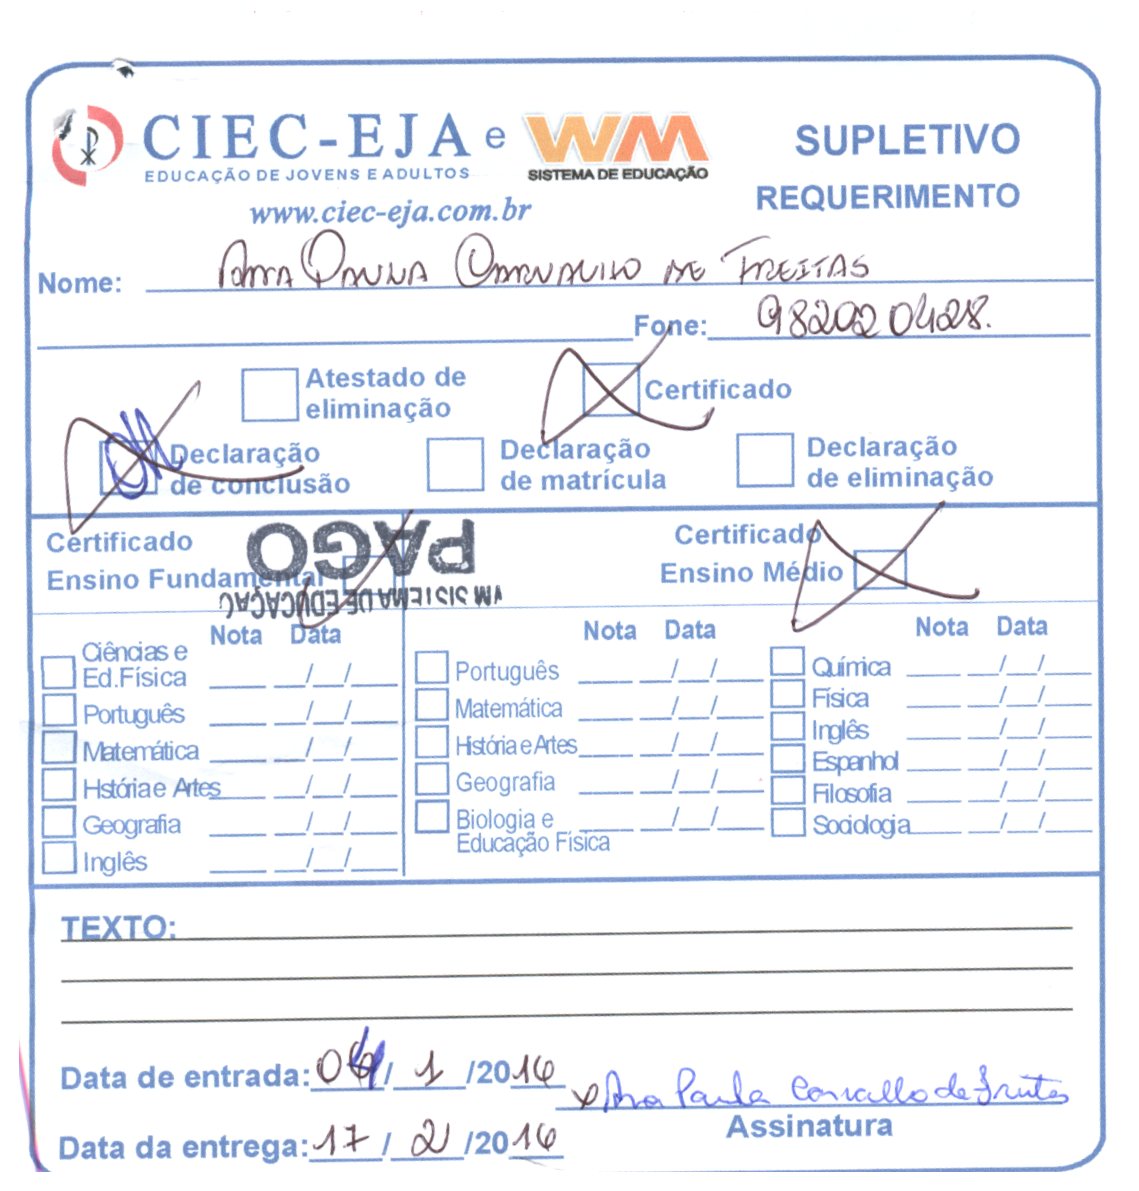 CIEC-EJA e WM SUPLETIVO
EDUCAÇÃO DE JOVENS E ADULTOS SISTEMA DE EDUCAÇÃO
www.ciec-eja.com.br REQUERIMENTO
Nome: Ana Paula Carvalho de Freitas
Fone: 982920428.
Atestado de eliminação
Certificado
Declaração de conclusão
Declaração de matrícula
Declaração de eliminação
PAGO
WM SISTEMA DE EDUCAÇAO
Certificado
Ensino Fundamental
Certificado
Ensino Médio
Nota Data
Ciências e
Ed.Física ___ __/__/__
Português ___ __/__/__
Matemática ___ __/__/__
História e Artes ___ __/__/__
Geografia ___ __/__/__
Inglês __/__/__
Nota Data
Português ___ __/__/__
Matemática ___ __/__/__
História e Artes ___ __/__/__
Geografia ___ __/__/__
Biologia e ___ __/__/__
Educação Física
Nota Data
Química ___ __/__/__
Física ___ __/__/__
Inglês ___ __/__/__
Espanhol ___ __/__/__
Filosofia ___ __/__/__
Sociologia ___ __/__/__
TEXTO:
Data de entrada: / 1 /2016
Ana Paula Carvallo de Freitas
Assinatura
Data da entrega: 17 / 2 /2016